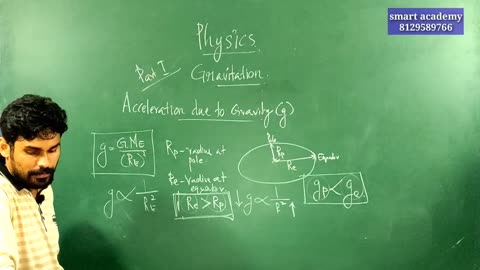 smart academy
8129589766
Physics
Part I
Gravitation
Acceleration due to Gravity (g)
g = G.ME / (RE)²
Rp - radius at pole
Re - radius at equator
Pole
Rp
Re
Equator
g ∝ 1/RE²
(Re > Rp)
↓ g ∝ 1/R² ↑
gp < ge